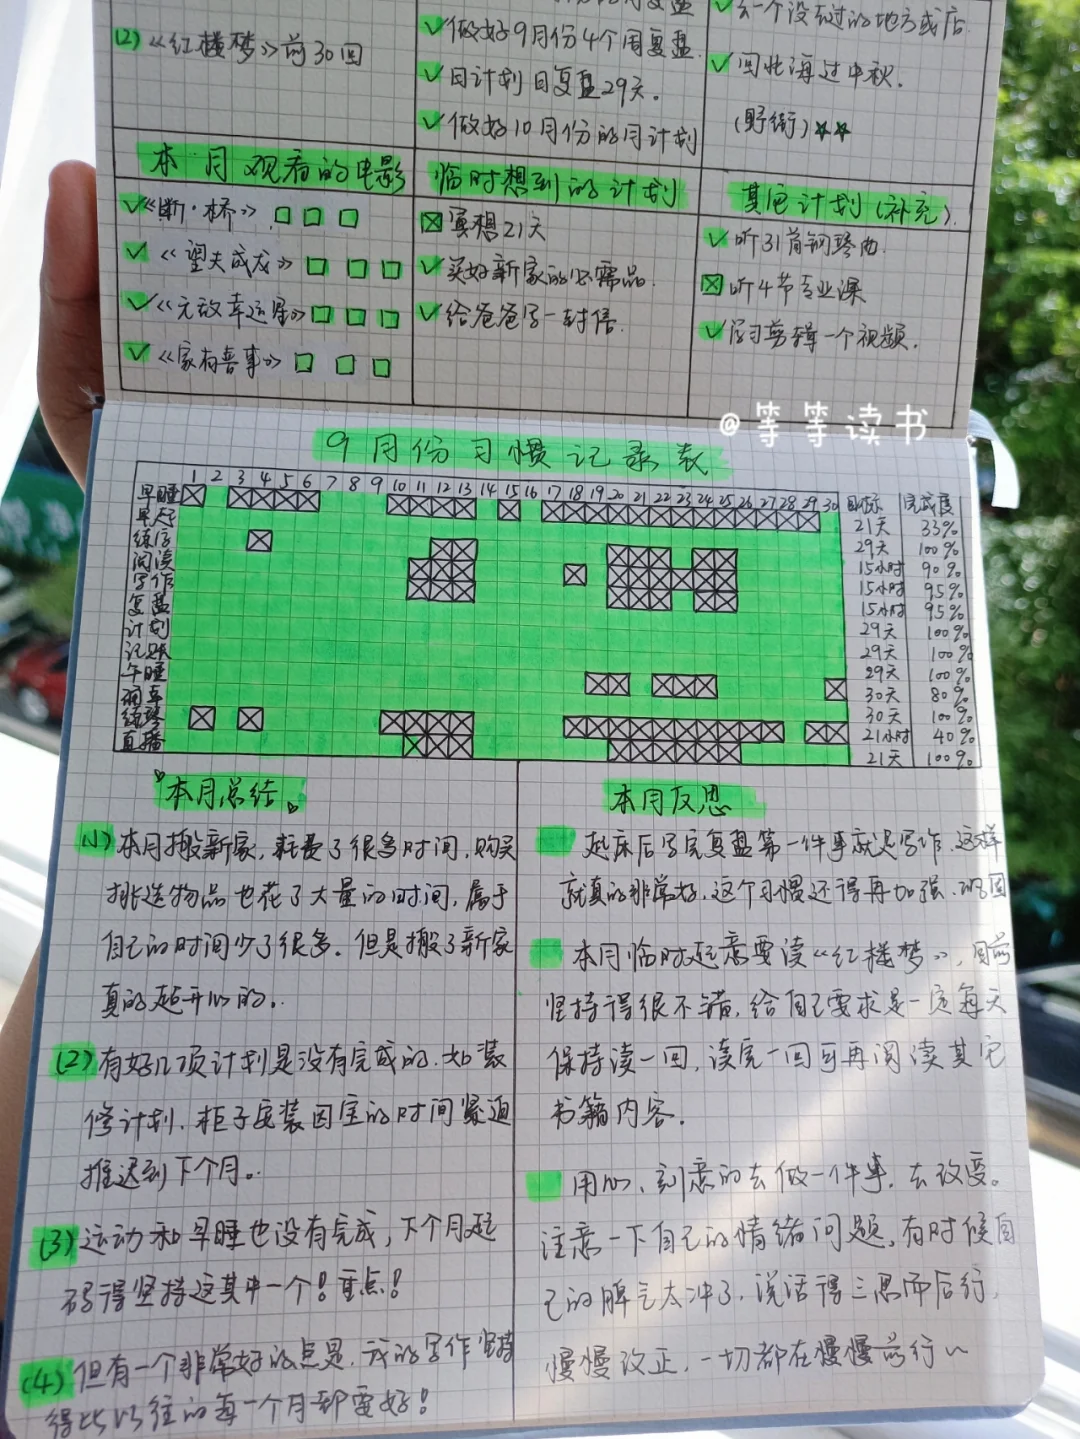 (2)《红楼梦》前30回
做好9月份4个周复盘.
日计划日复盘29天.
做好10月份的月计划
去一个没去过的地方或店.
回北海过中秋.
(野街)
本月观看的电影
《断·桥》
《望夫成龙》
《无敌幸运星》
《家有喜事》
临时想到的计划
冥想21天
买好新家的必需品.
给爸爸写一封信.
其它计划(补充).
听31首钢琴曲.
听4节专业课
学习剪辑一个视频.
@等等读书
9月份习惯记录表
1 2 3 4 5 6 7 8 9 10 11 12 13 14 15 16 17 18 19 20 21 22 23 24 25 26 27 28 29 30 目标 完成度
早睡 21天 33%
早起 29天 100%
练字 15小时 90%
阅读 15小时 95%
写作 15小时 95%
复盘 29天 100%
计划 29天 100%
记账 29天 100%
午睡 30天 80%
30天 100%
练琴 21小时 40%
直播 21天 100%
本月总结
(1)本月搬新家,耗费了很多时间,购买
挑选物品也花了大量的时间,属于
自己的时间少了很多.但是搬了新家
真的挺开心的..
(2)有好几项计划是没有完成的.如装
修计划.柜子安装因宝的时间紧迫
推迟到下个月..
(3)运动和早睡也没有完成,下个月起
码得坚持这其中一个!重点!
(4)但有一个非常好的点是,我的写作坚持
得比以往的每一个月都要好!
本月反思
起床后写完复盘第一件事就是写作.这样
就真的非常好,这个习惯还得再加强.巩固
本月临时起意要读《红楼梦》,目前
坚持得很不错,给自己要求是一定每天
保持读一回,读完一回可再阅读其它
书籍内容.
用心、刻意的去做一件事.去改变。
注意一下自己的情绪问题,有时候自
己的脾气太冲了.说话得三思而后行,
慢慢改正.一切都在慢慢前行~